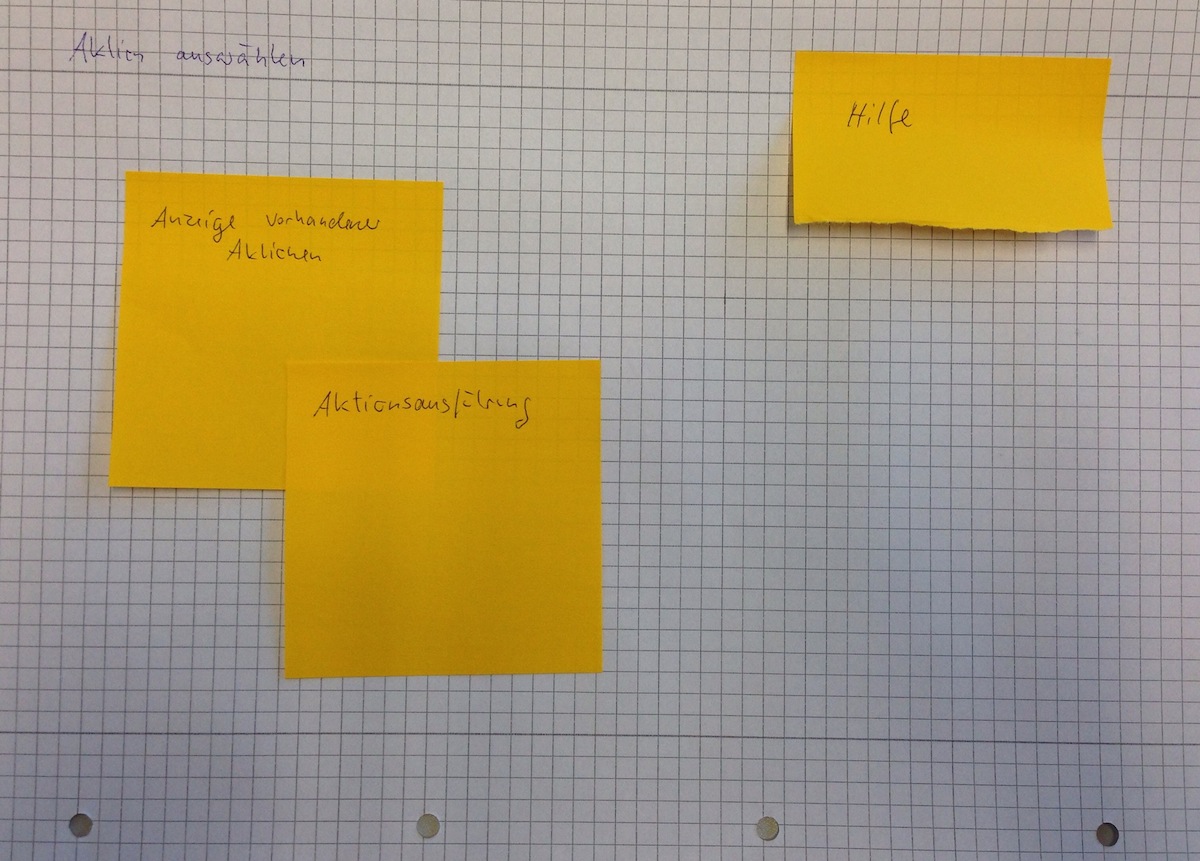 Aktion auswählen
Hilfe
Anzeige vorhandener
Aktionen
Aktionsausführung